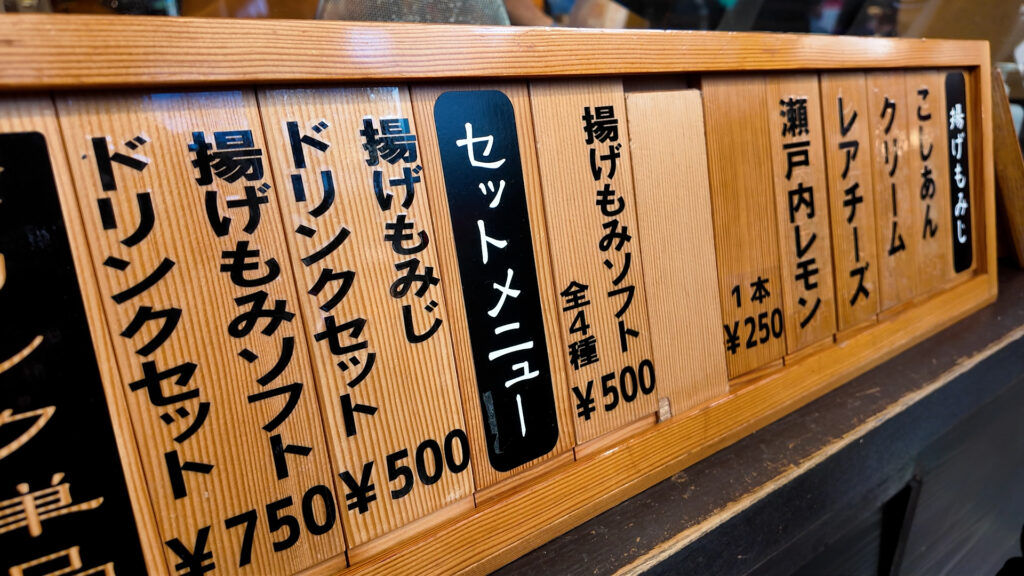 揚げもみじ
こしあん
クリーム
レアチーズ
瀬戸内レモン
1本
¥250
揚げもみソフト
全4種
¥500
セットメニュー
揚げもみじ
ドリンクセット
¥500
揚げもみソフト
ドリンクセット
¥750